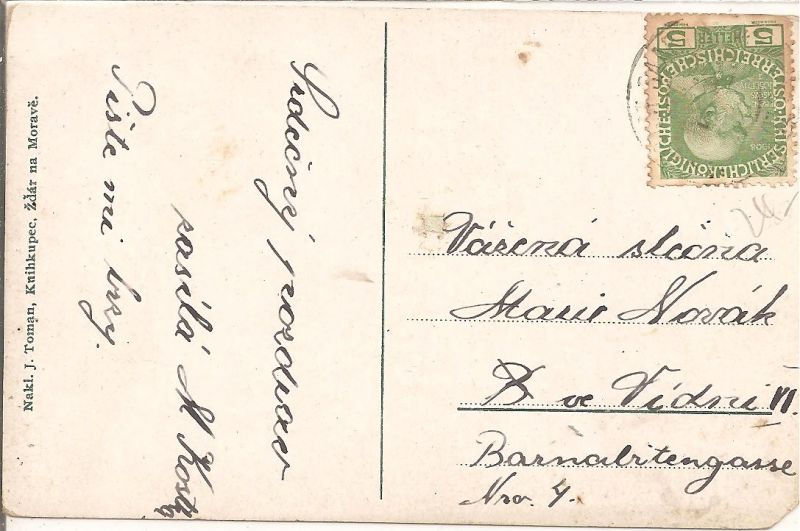 Nakl. J. Toman, Knihkupec, Žďár na Moravě.
Srdečný pozdrav
zasílá M Kostk
Pište mi brzy.
5 HELLER 5
KAISERLICHEKÖNIGLICHE
ÖSTERREICHISCHE POST
1848 1908
Vážená slečna
Marie Novák
ve Vídni VI.
Barnabitengasse
Nro. 4.